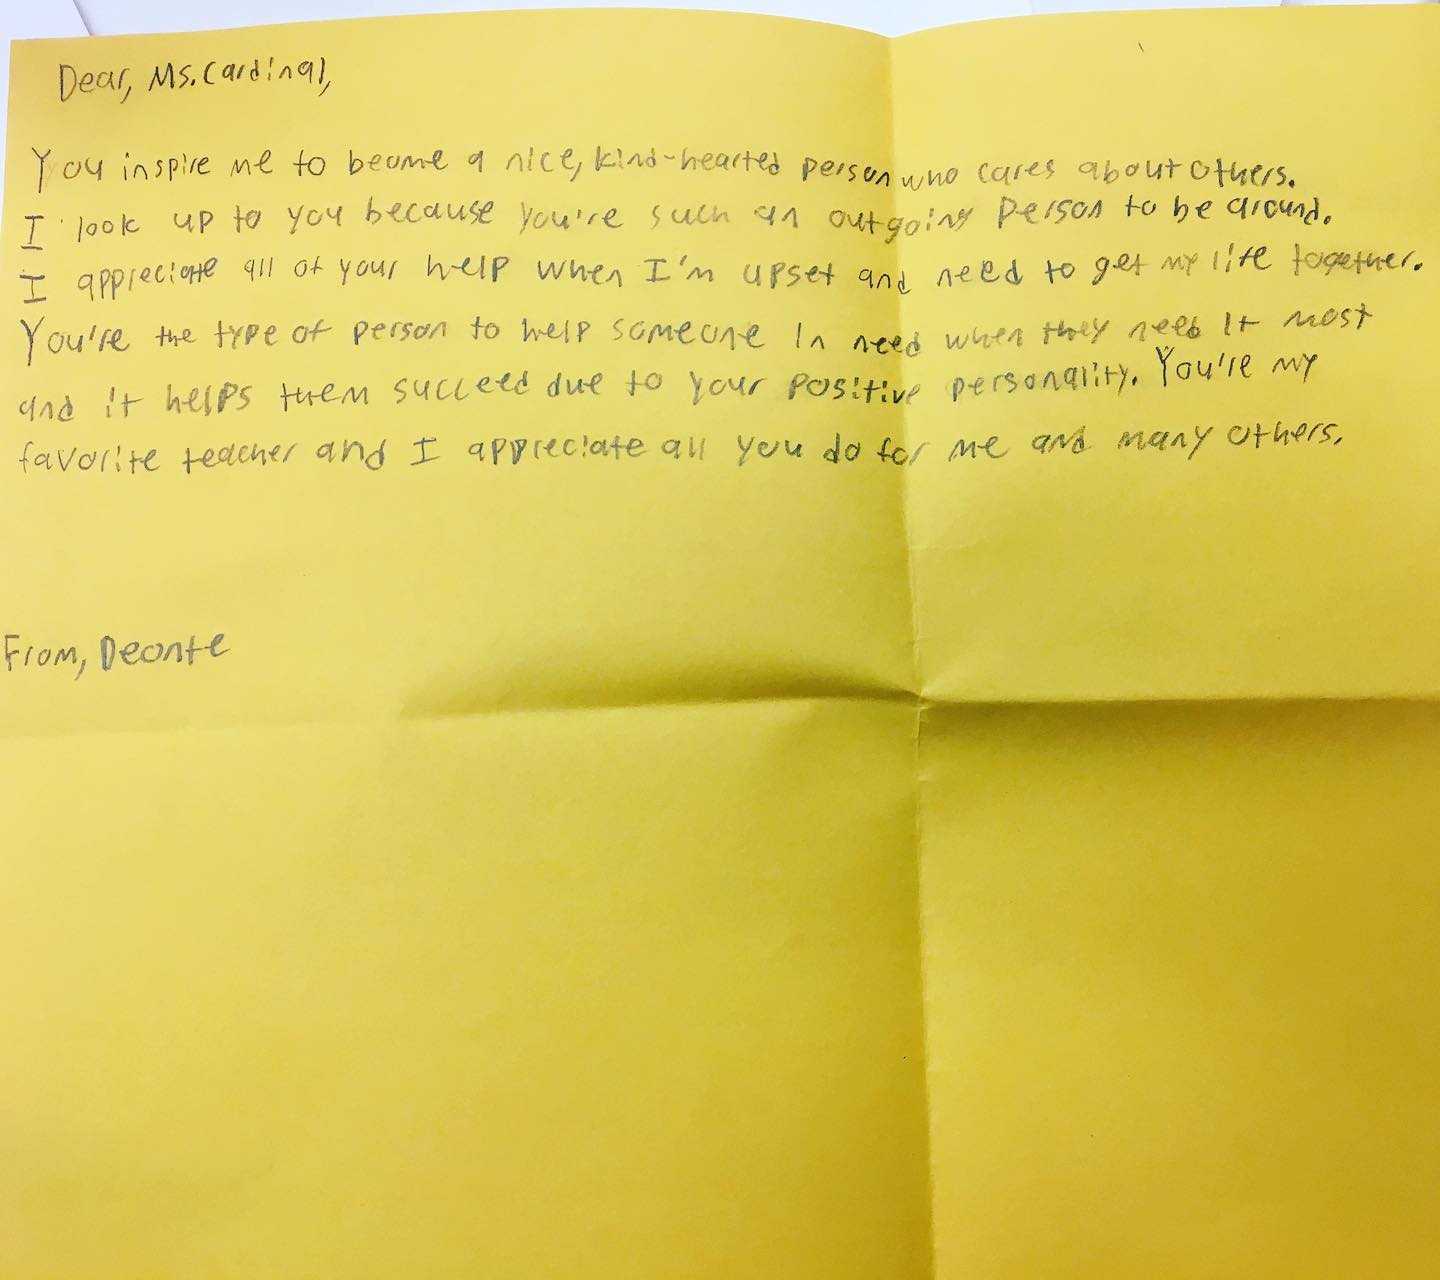 Dear, Ms. Cardinal,
You inspire me to become a nice, kind-hearted person who cares about others.
I look up to you because you're such an outgoing person to be around.
I appreciate all of your help when I'm upset and need to get my life together.
You're the type of person to help someone in need when they need it most
and it helps them succeed due to your positive personality. You're my
favorite teacher and I appreciate all you do for me and many others.
From, Deonte